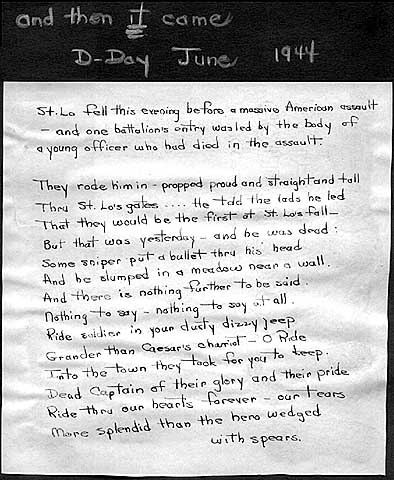 and then it came
D-Day June 1944
St. Lo fell this evening before a massive American assault
- and one battalion's entry was led by the body of
a young officer who had died in the assault.
They rode him in - propped proud and straight and tall
Thru St. Lo's gates .... He told the lads he led
That they would be the first at St. Lo's fall -
But that was yesterday - and he was dead:
Some sniper put a bullet thru his head
And he slumped in a meadow near a wall.
And there is nothing further to be said
Nothing to say - nothing to say at all.
Ride soldier in your dusty dizzy jeep
Grander than Caesar's chariot - O Ride
Into the town they took for you to keep.
Dead Captain of their glory and their pride
Ride thru our hearts forever - our tears
More splendid than the hero wedged
with spears.